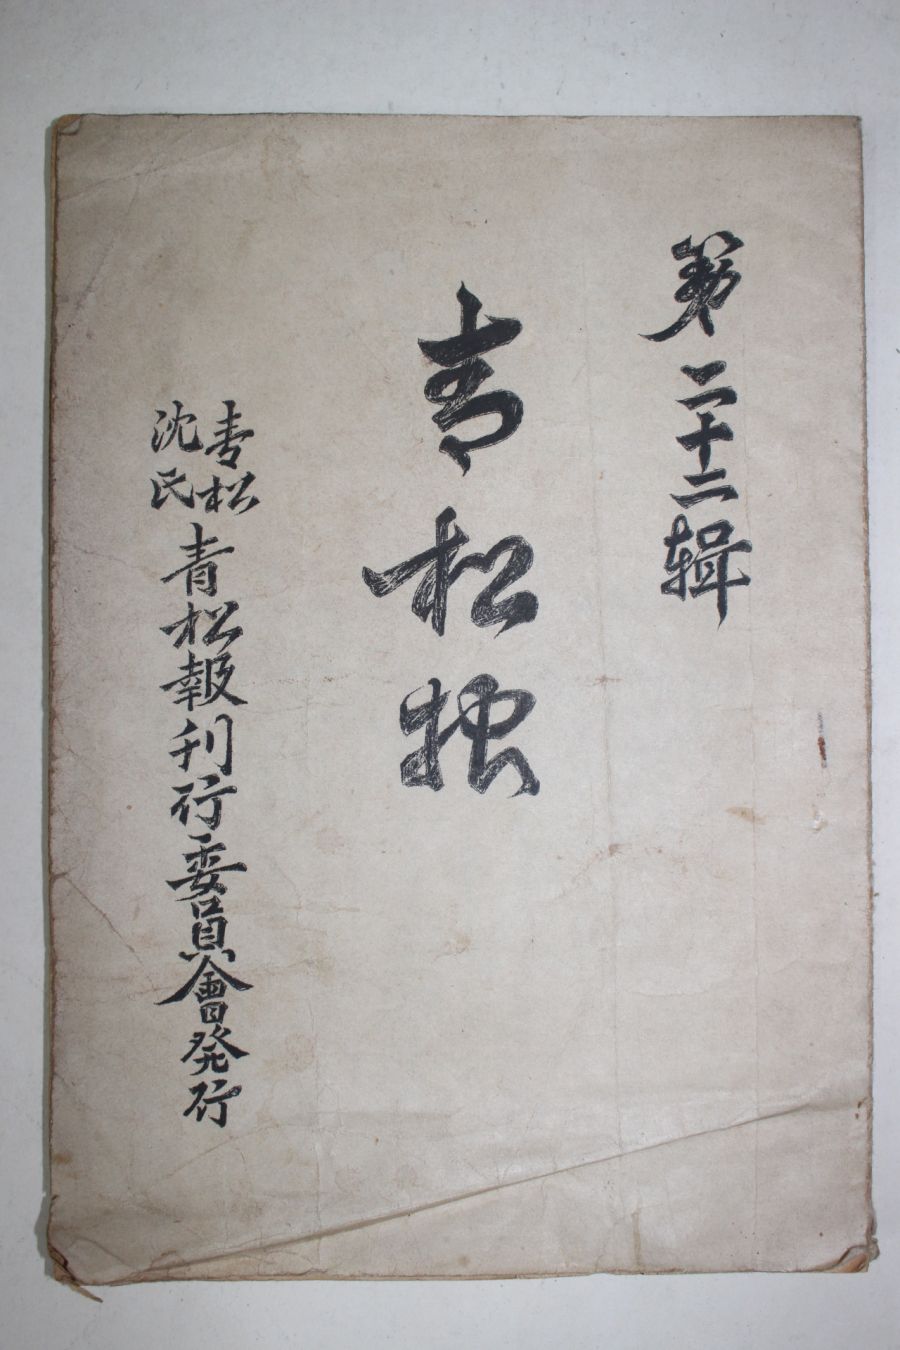 第二十二輯
青松報
青松
沈氏
青松報刊行委員會発行